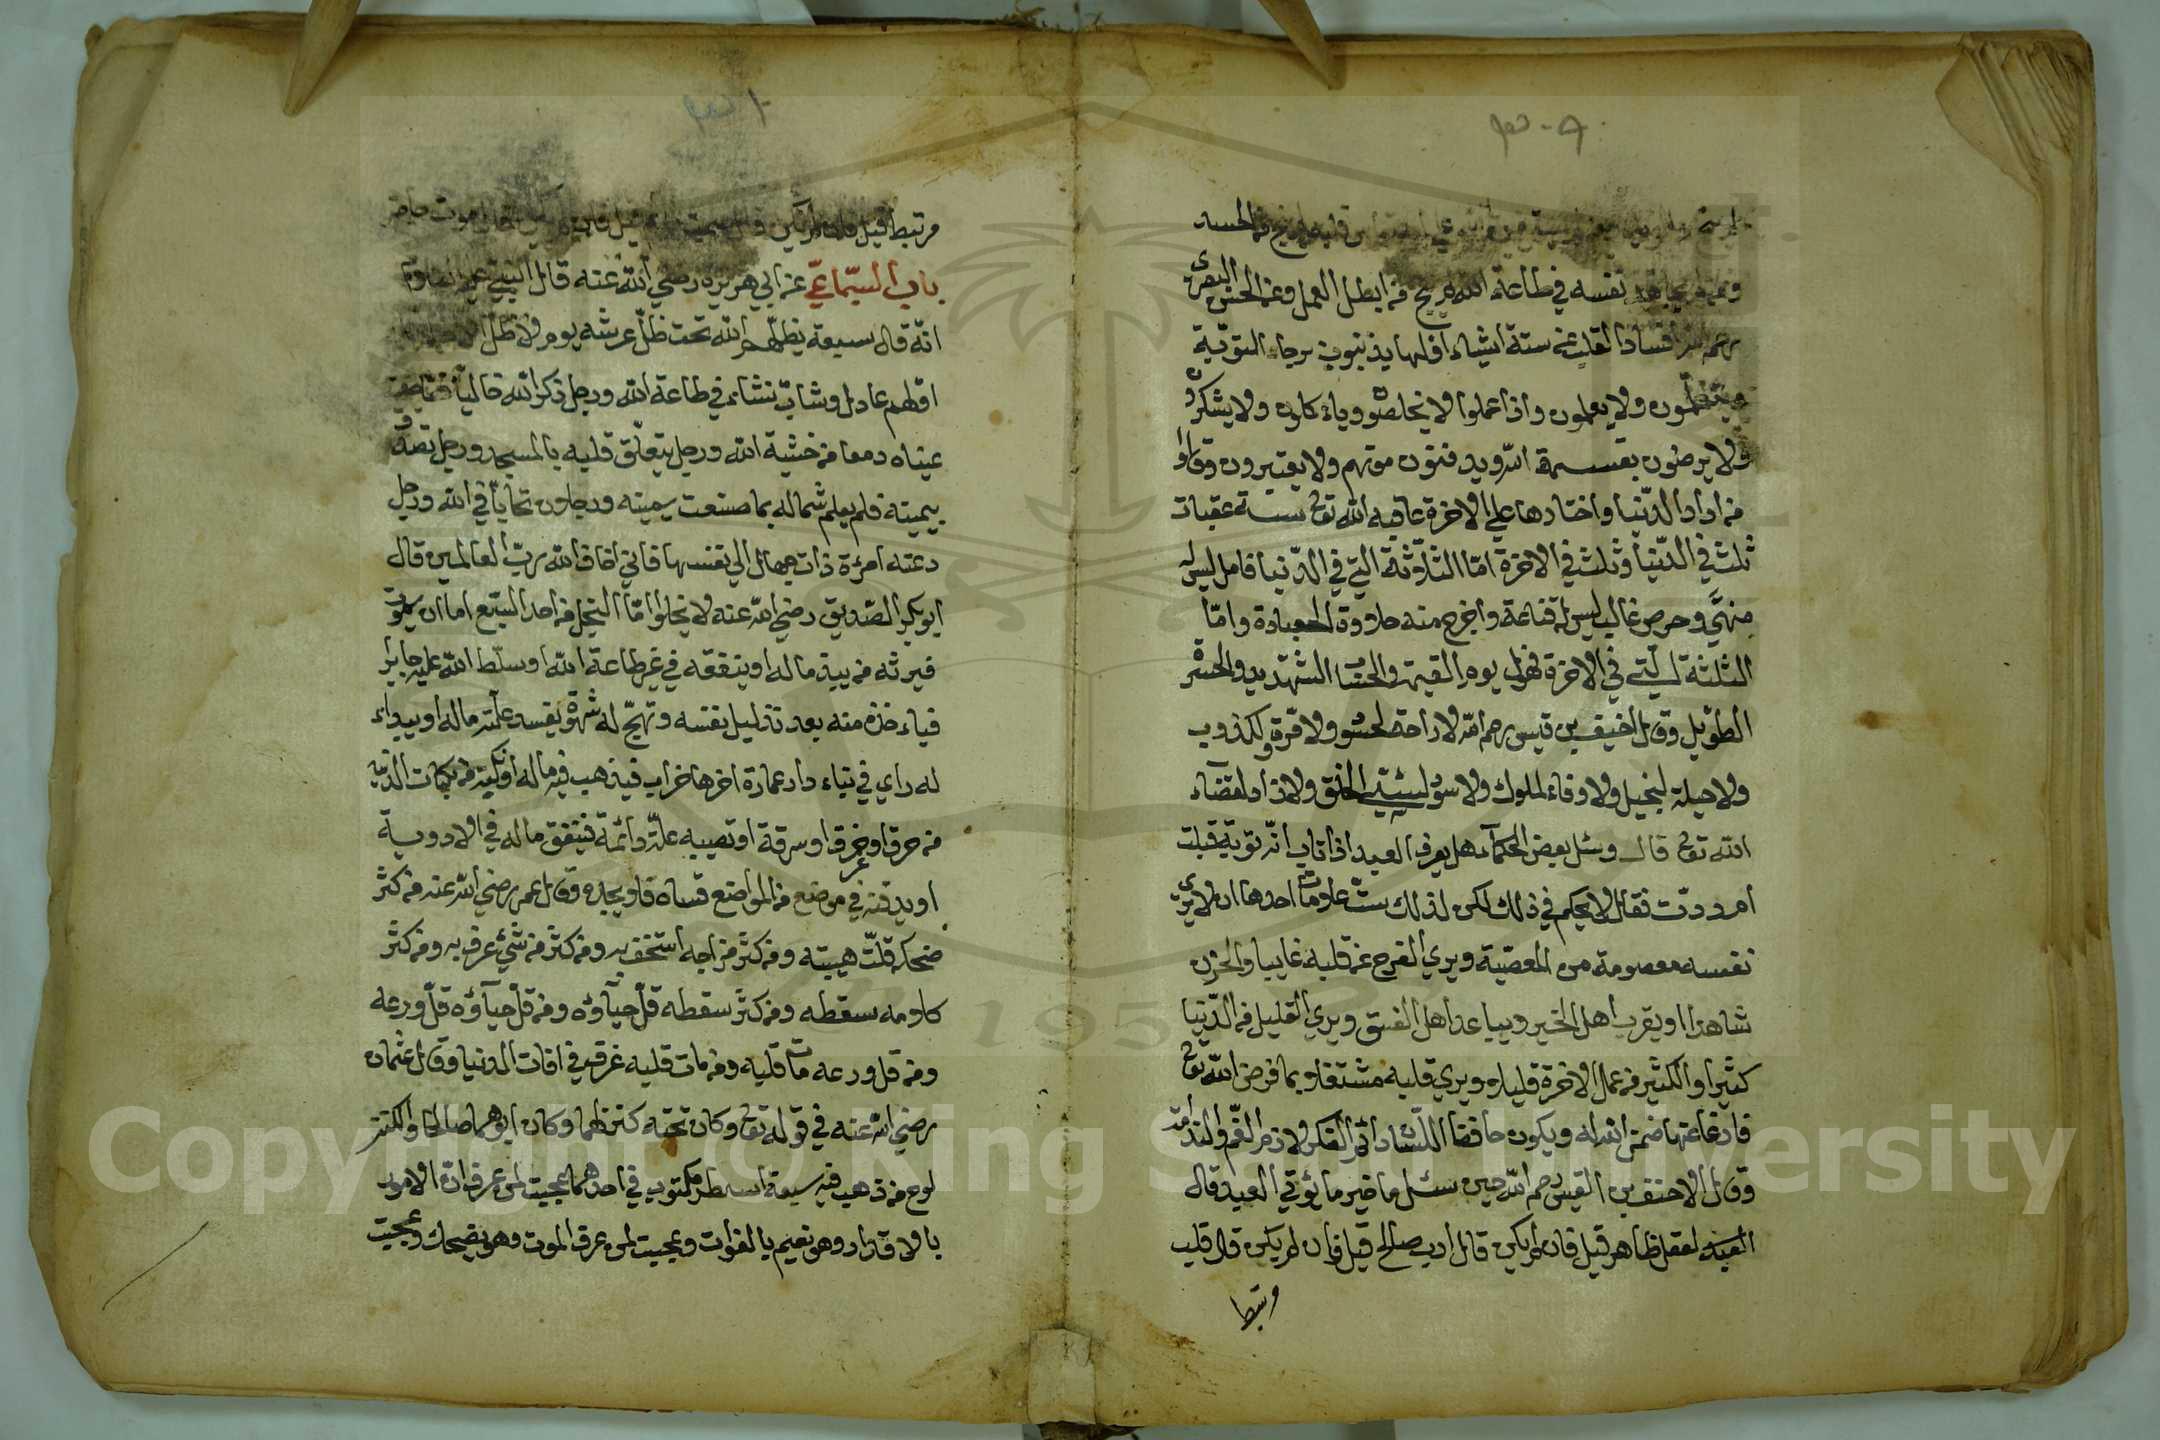 ومن لم يجاهد نفسه في طاعة الله لم ينج من ابطل العمل وعن الحسن البصرى
رحمه الله افساد القلب عن ستة اشياء اولها يذنبون برجاء التوبة
ويتعلمون ولا يعملون واذا عملوا لا يخلصون وياء كلون ولا يشكرون
ولا يرضون بقسمة الله ويدفنون موتهم ولا يعتبرون وقالوا
من اراد الدنيا واختارها علي الاخرة عاقبه الله تع ستة عقبات
ثلث في الدنيا وثلث في الاخرة امّا الثلاثة التي في الدنيا فامل ليس له
منهىً وحرص غالب ليس له قناعة واخرج منه حلاوة العبادة وامّا
الثلثة التي في الاخرة فهول يوم القيمة والحساب الشهديد والحسرة
الطويل وقال احنيف بن قيس رحمه الله لا راحة لحسود ولا مروّة لكذوب
ولا حيلة لبخيل ولا وفاء لملوك ولا سودد لسيّئي الخلق ولا راد لقضاء
الله تع قال وسئل بعض الحكماء هل يعرف العبد اذا تاب انّه توبة قبلت
ام ردّت فقال لا احكم في ذلك لكن لذلك ستّ علامات احدها ان لا يرى
نفسه معصومة من المعصية ويري الفرح عن قلبه غايبا والحزن
شاهدا او يقرب اهل الخير ويباعد اهل الفسق ويري القليل من الدّنيا
كثيرا والكثير من عمل الاخرة قليلا ويري قلبه مشتغلا بما فرض الله تع
فارغا عنها ضمن الله له ويكون حافظ اللّسان دائم الفكر لازم الغم والندامة
وقال الاحنف بن القيس رحمه الله حين سئل ما خير ما يؤتي العبد قال
العبد لعقل ظاهر قيل فان لم يكن قال ادب صالح قيل فان لم يكن قال قلب
مرتبط
باب السباعيّ عن ابي هريرة رضي الله عنه قال النبيّ عم
انّه قال سبعة يظلّهم الله تحت ظلّ عرشه يوم لا ظل الا
اوّلهم عادل وشابّ نشاء في طاعة الله ورجل ذكر الله خالياً ففاضت
عيناه دمعا من خشية الله ورجل يتعلّق قلبه بالمسجد ورجل تصدّق
بيمينه فلم يعلم شماله بما صنعت يمينه ورجلان تحابّا في الله ورجل
دعته امرءة ذات جمال الي نفسها فاني اخاف الله ربّ العالمين قال
ابو بكر الصّديق رضي الله عنه لا يخلوا امّا البخيل من احد السّبع اما ان يموت
فيرثه من يبذ ماله او ينفقه في غير طاعة الله او سلّط الله عليه جابر
فياء خذه منه بعد تذليل نفسه وتهيّج له شهوة يفسد عليه ماله او يبداء
له راي في بناء دار عمارة اخرها خراب فيذهب فيه ماله او نكبة من نكبات الدنيا
من حرق او غرق او سرقة او تصيبه علة دائمة فينفق ماله في الادوية
او يدفنه في موضع من المواضع فنساه فلا يجده وقال عمر رضي الله عنه من كثر
ضحكه قلّت هيبته ومن كثر مزاجه استخف به ومن كثر من شيء عرف به ومن كثر
كلامه سقطه ومن كثر سقطه قلّ حيآؤه ومن قلّ حيآؤه قلّ ورعه
ومن قل ورعه مات قلبه ومن مات قلبه غرق في افات الدنيا وقال عثمان
رضي الله عنه في قوله تع وكان تحته كنز لهما وكان ابوهما صالحا والكنز
لوح من ذهب فيه سبعة اسطر مكتوب في احدهما عجبت لمن عرف انّ الامور
بالاقدار وهو نعيم بالفوات وعجبت لمن عرف الموت وهو يضحك وعجبت